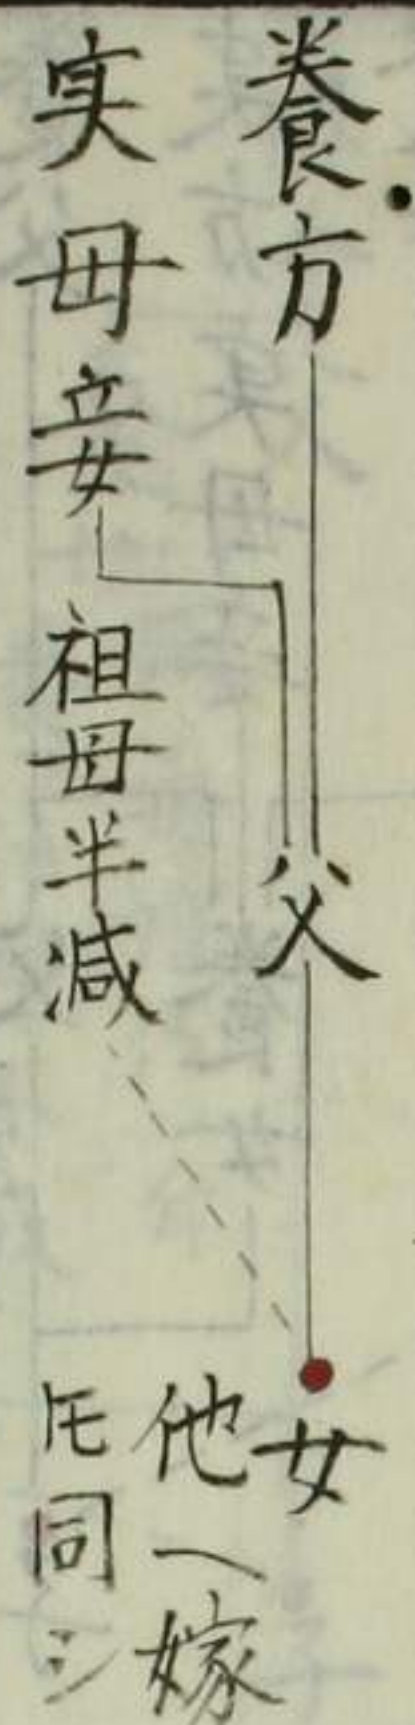 養方
父
女
実母妾
祖母半減
他ヘ嫁
𪜈同シ